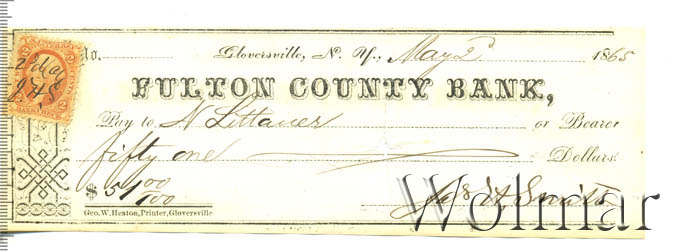 No. Gloversville, N. Y., May 2d 1865
FULTON COUNTY BANK,
Pay to N Littauer or Bearer
fifty one Dollars.
$ 51 00/100
Geo. W. Heaton, Printer, Gloversville
Wolmar